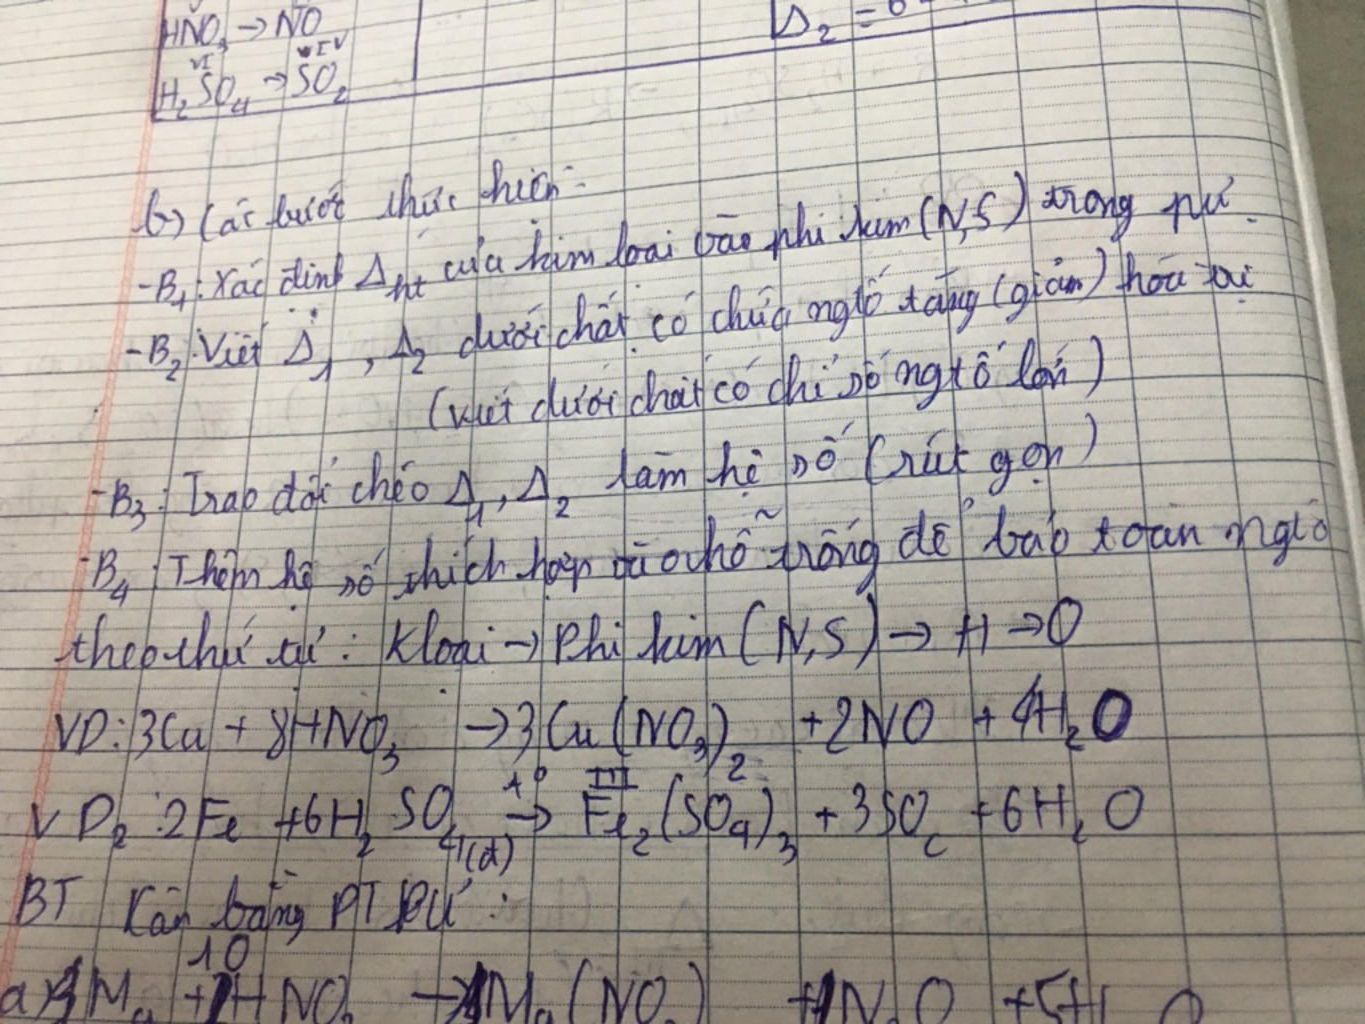 HNO3 → NO
Δ2 =
VI IV
H2SO4 → SO2
b) Các bước thực hiện:
-B1: Xác định Δht của kim loại vào phi kim (N,S) trong pư.
-B2: Viết Δ1, Δ2 dưới chất có chứa ngtố tăng (giảm) hóa trị
(viết dưới chất có chỉ số ngtố lớn)
-B3: Trao đổi chéo Δ1, Δ2 làm hệ số (rút gọn)
-B4: Thêm hệ số thích hợp vào chỗ trống để bảo toàn ngtố
theo thứ tự: Kloại → Phi kim (N,S) → H → O
VD: 3Cu + 8HNO3 → 3Cu(NO3)2 + 2NO + 4H2O
III
VD2: 2Fe + 6H2SO4(đ) t° → Fe2(SO4)3 + 3SO2 + 6H2O
BT Kân bằng PTPƯ:
10
a) 4Mg + HNO3 → 4Mg(NO3) + N2O + 5H2O